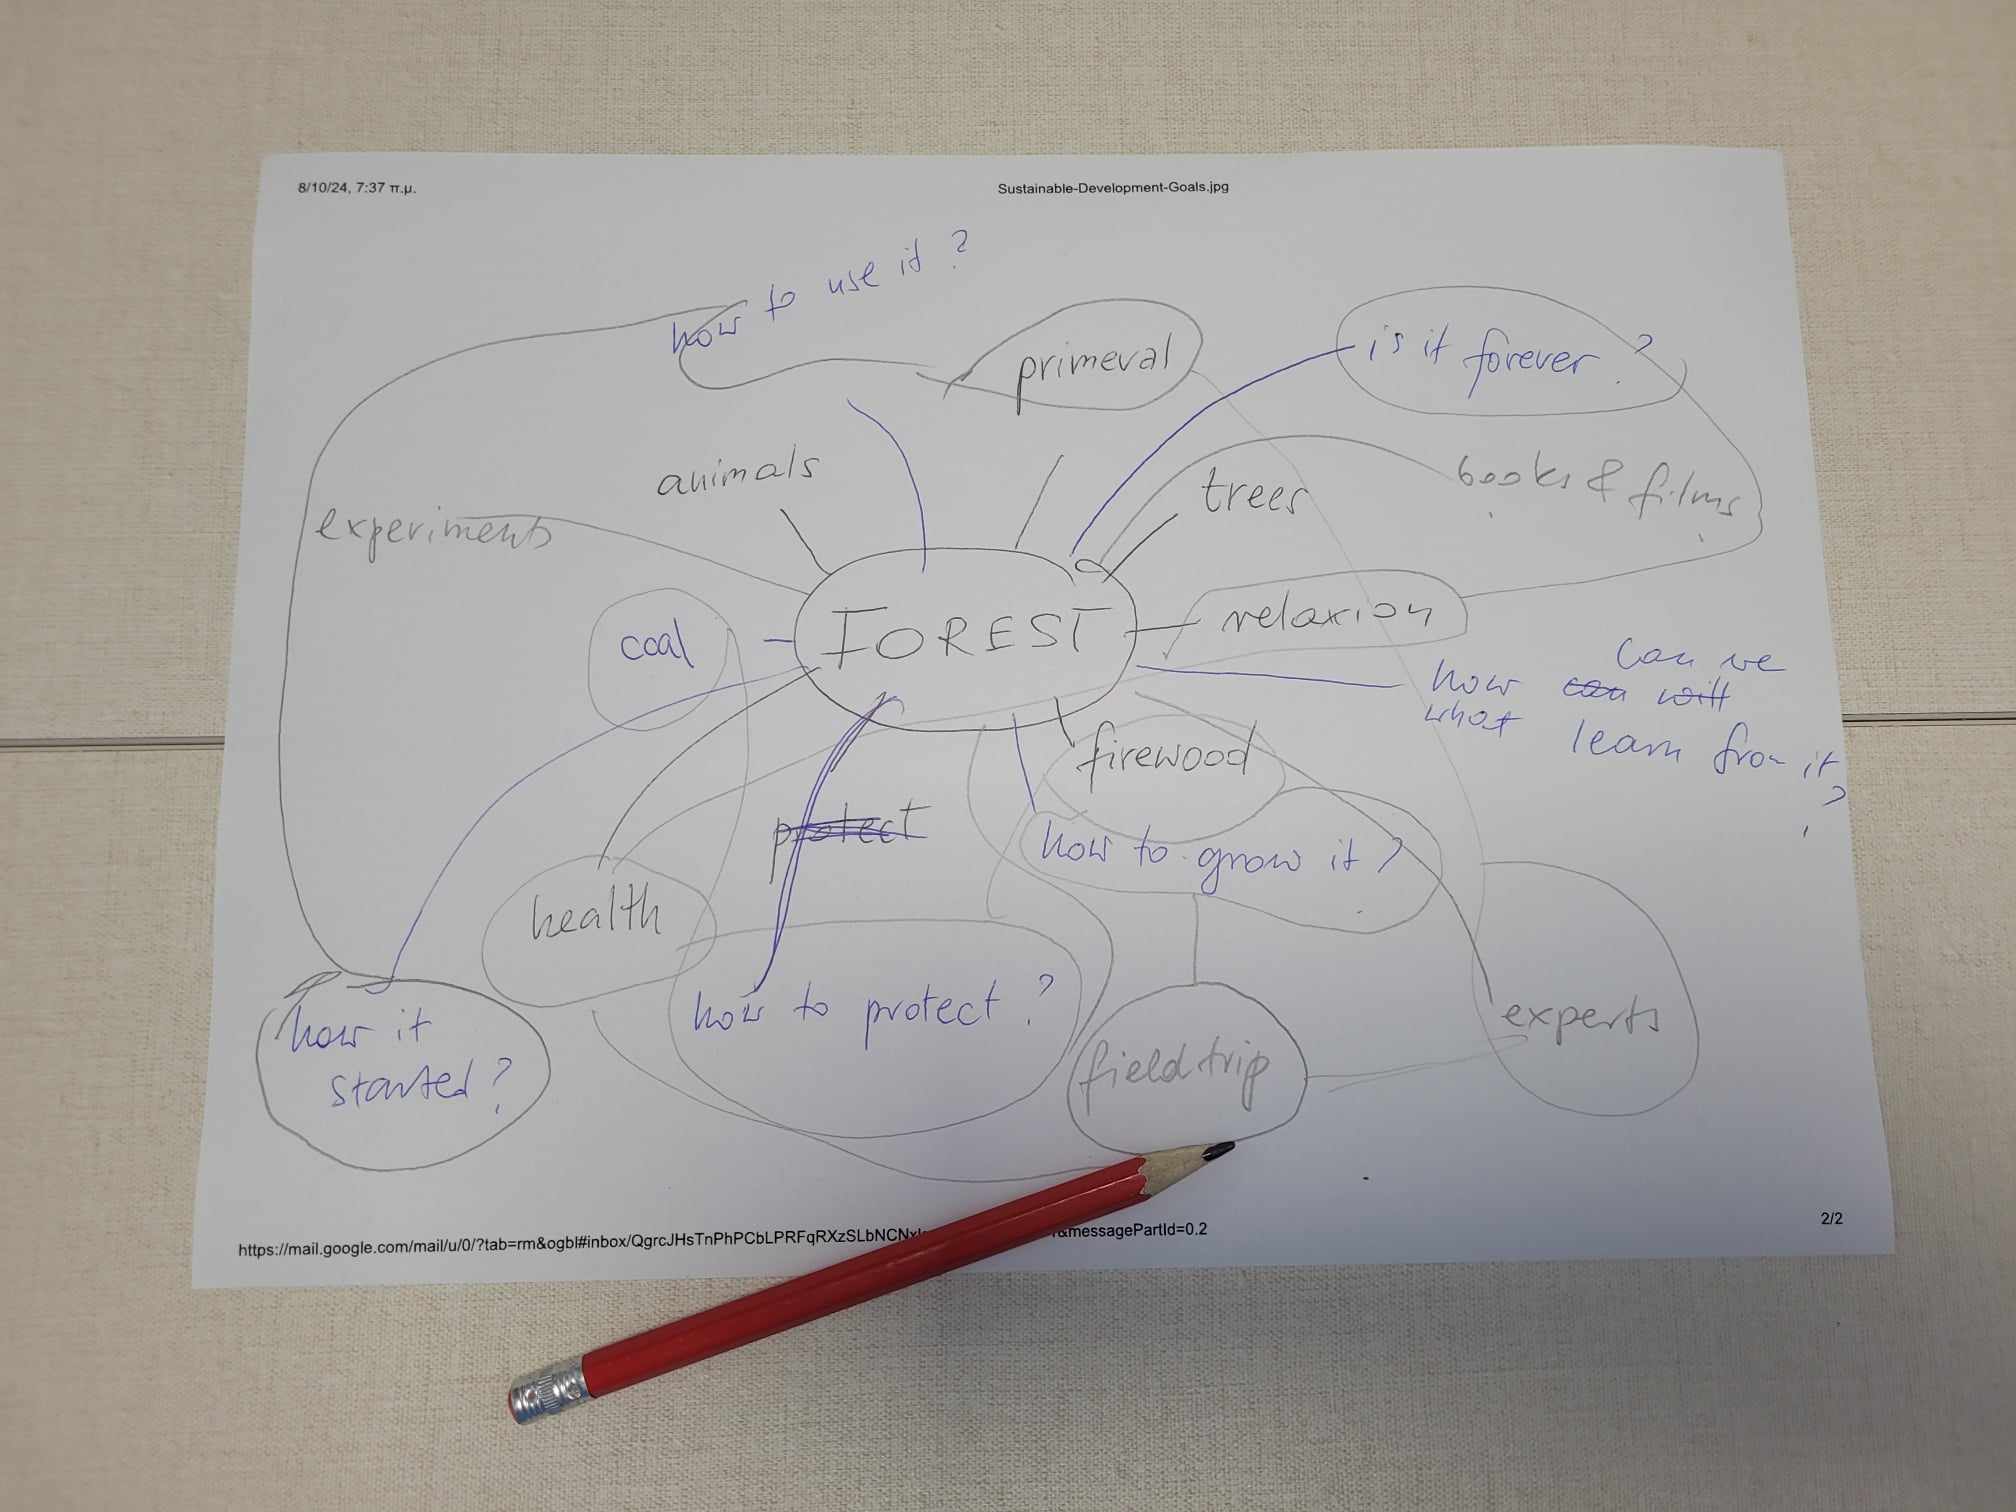 8/10/24, 7:37 π.μ.
Sustainable-Development-Goals.jpg
how to use it ?
primeval
is it forever ?
animals
trees
books & films
experiments
coal
FOREST
relaxion
can we
how can will
what
learn from it ?
firewood
protect
how to grow it ?
health
how to protect ?
how it
started ?
field trip
experts
https://mail.google.com/mail/u/0/?tab=rm&ogbl#inbox/QgrcJHsTnPhPCbLPRFqRXzSLbNCNx
&messagePartId=0.2
2/2